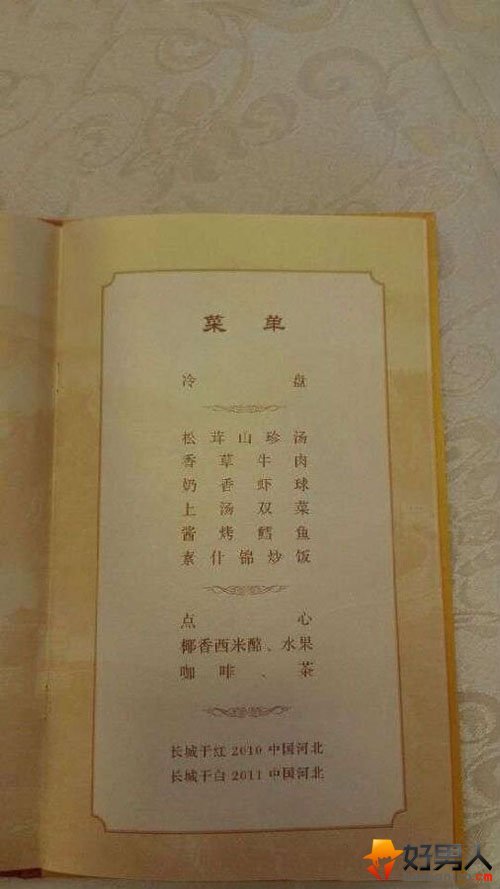 菜单
冷盘
松茸山珍汤
香草牛肉
奶香虾球
上汤双菜
酱烤鳕鱼
素什锦炒饭
点心
椰香西米酪、水果
咖啡、茶
长城干红 2010 中国河北
长城干白 2011 中国河北
好男人